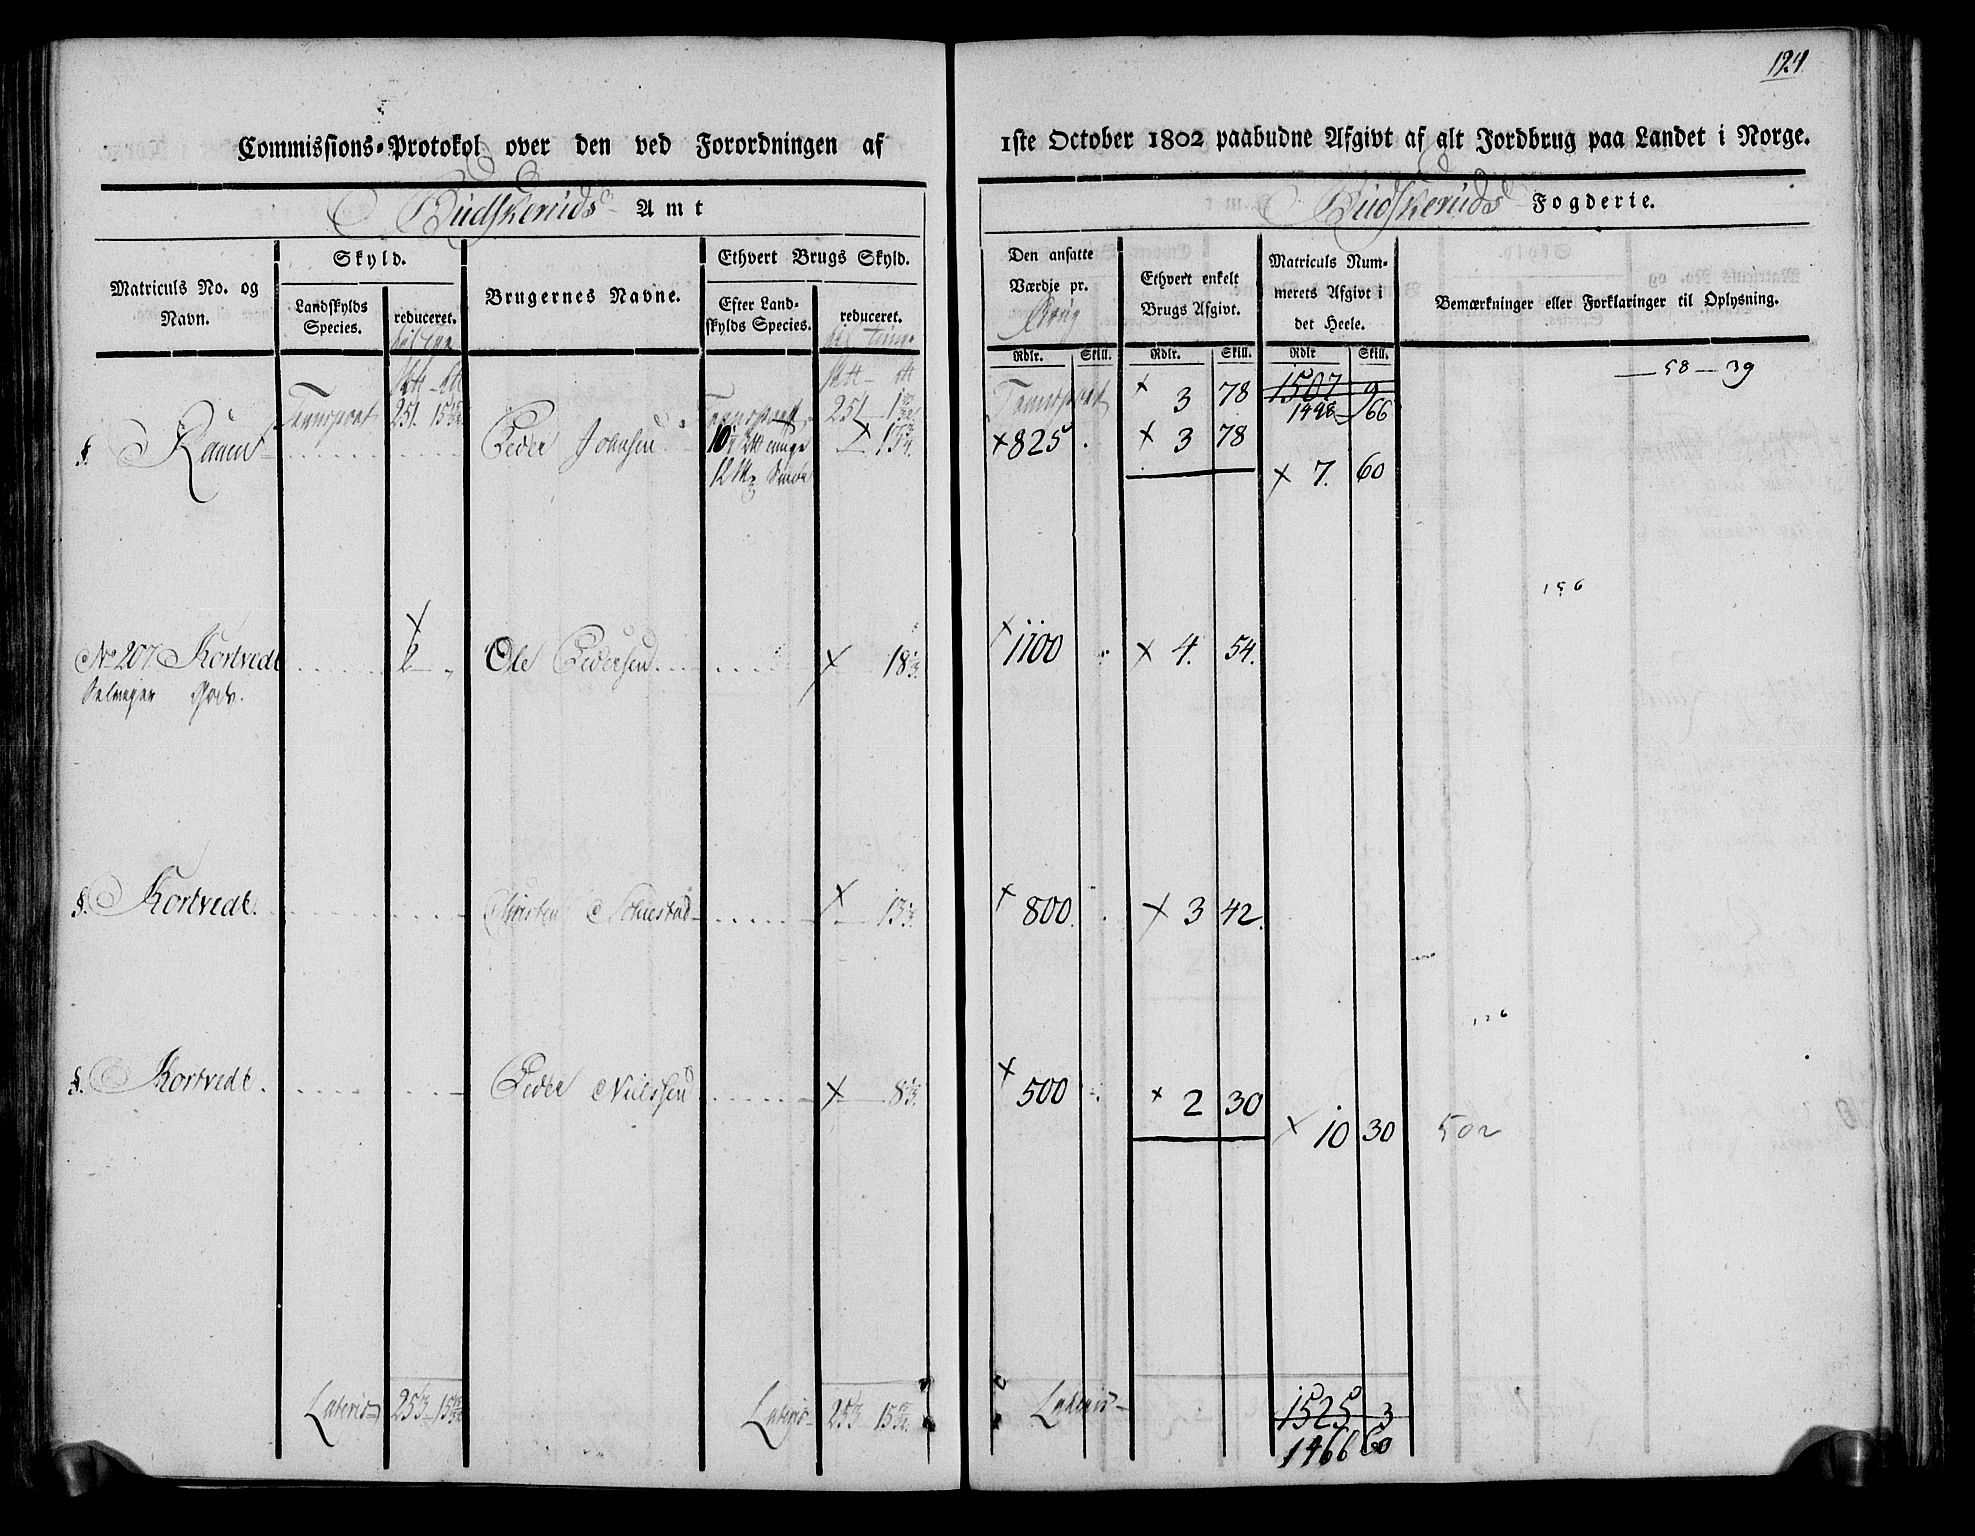 124
Commissions-Protokol over den ved Forordningen af
1ste October 1802 paabudne Afgivt af alt Jordbrug paa Landet i Norge.
Budskeruds Amt
Budskeruds Fogderie.
Matriculs No. og Navn.
Skyld.
Landskylds Species.
reduceret.
Brugernes Navne.
Ethvert Brugs Skyld.
Efter Landskylds Species.
reduceret.
Den ansatte Værdie pr.
Ethvert enkelt Brugs Afgivt.
Matriculs Nummerets Afgivt i det Heele.
Bemærkninger eller Forklaringer til Oplysning.
Rdlr. Skill. Rdlr. Skill. Rdlr Skill.
Transport 251. Transport 251 Transport × 3 78 1507 9
58 – 39
1498 66
§. Rauen Peder Johnsen × 825 × 3 78
12 × 7. 60
156
No 207. Kortvedt 2 Ole Pedersen × 18 × 1100 × 4. 54.
Selveyer Gods.
§. Kortvedt. Schiestad × 13 × 800 × 3 42.
§. Kortvedt. Peder Nielssen × 8 × 500 × 2 30
× 10 30 502
Lateris 253 – 15 Lateris 253 15 Lateris 1525 3
1466 60